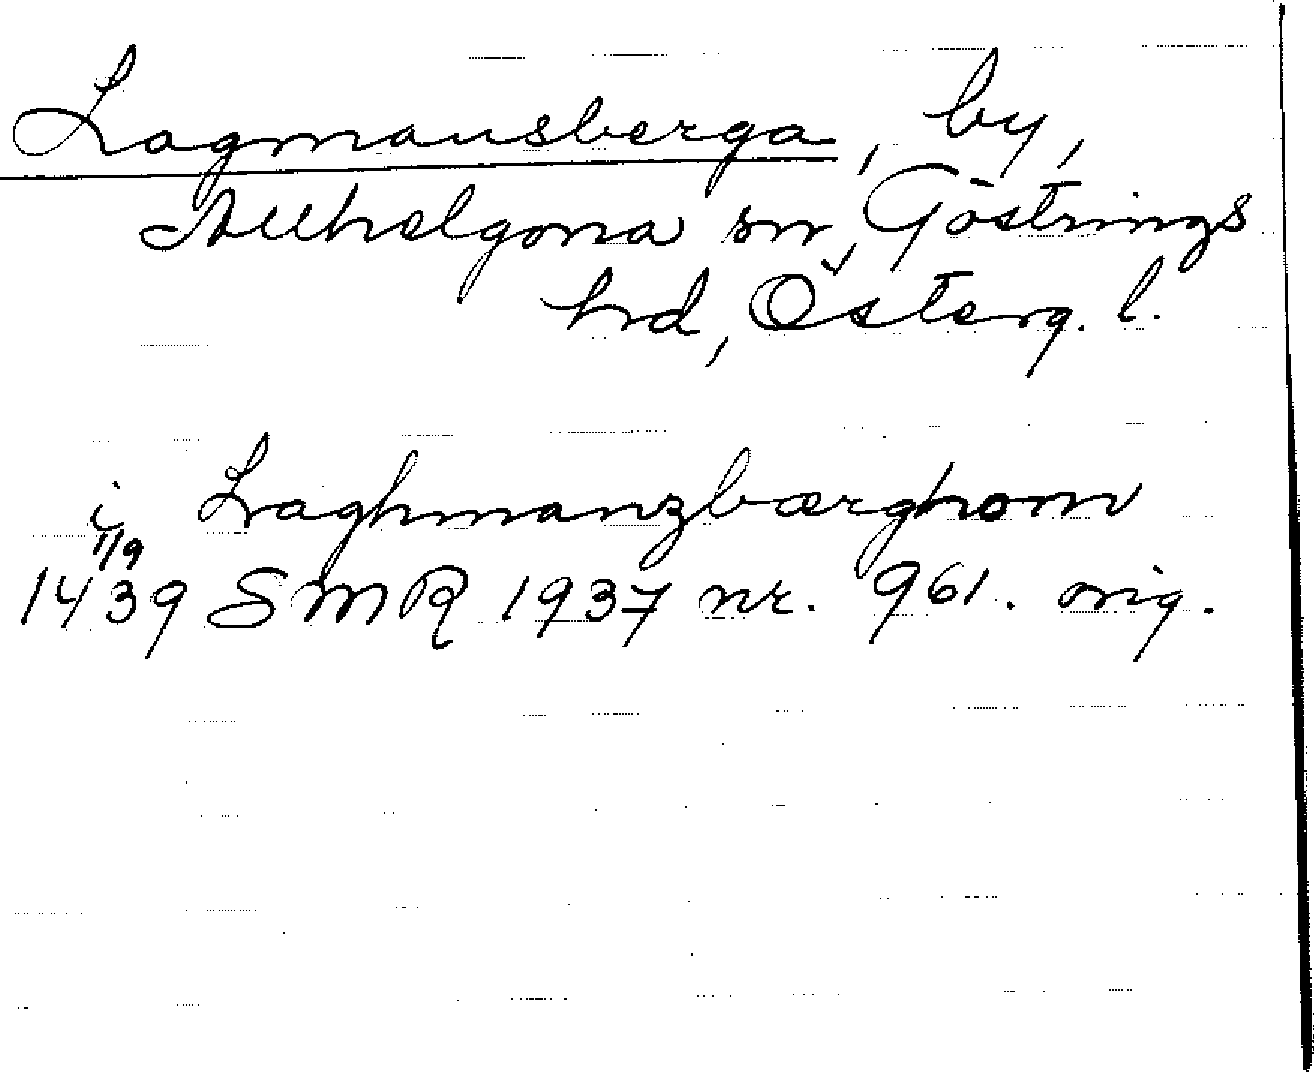 Lagmansberga, by,
Allhelgona sn, Göstrings
hd, Österg. l.
i Laghmanzbærghom
1/9
1439 SMR 1937 nr. 961. orig.